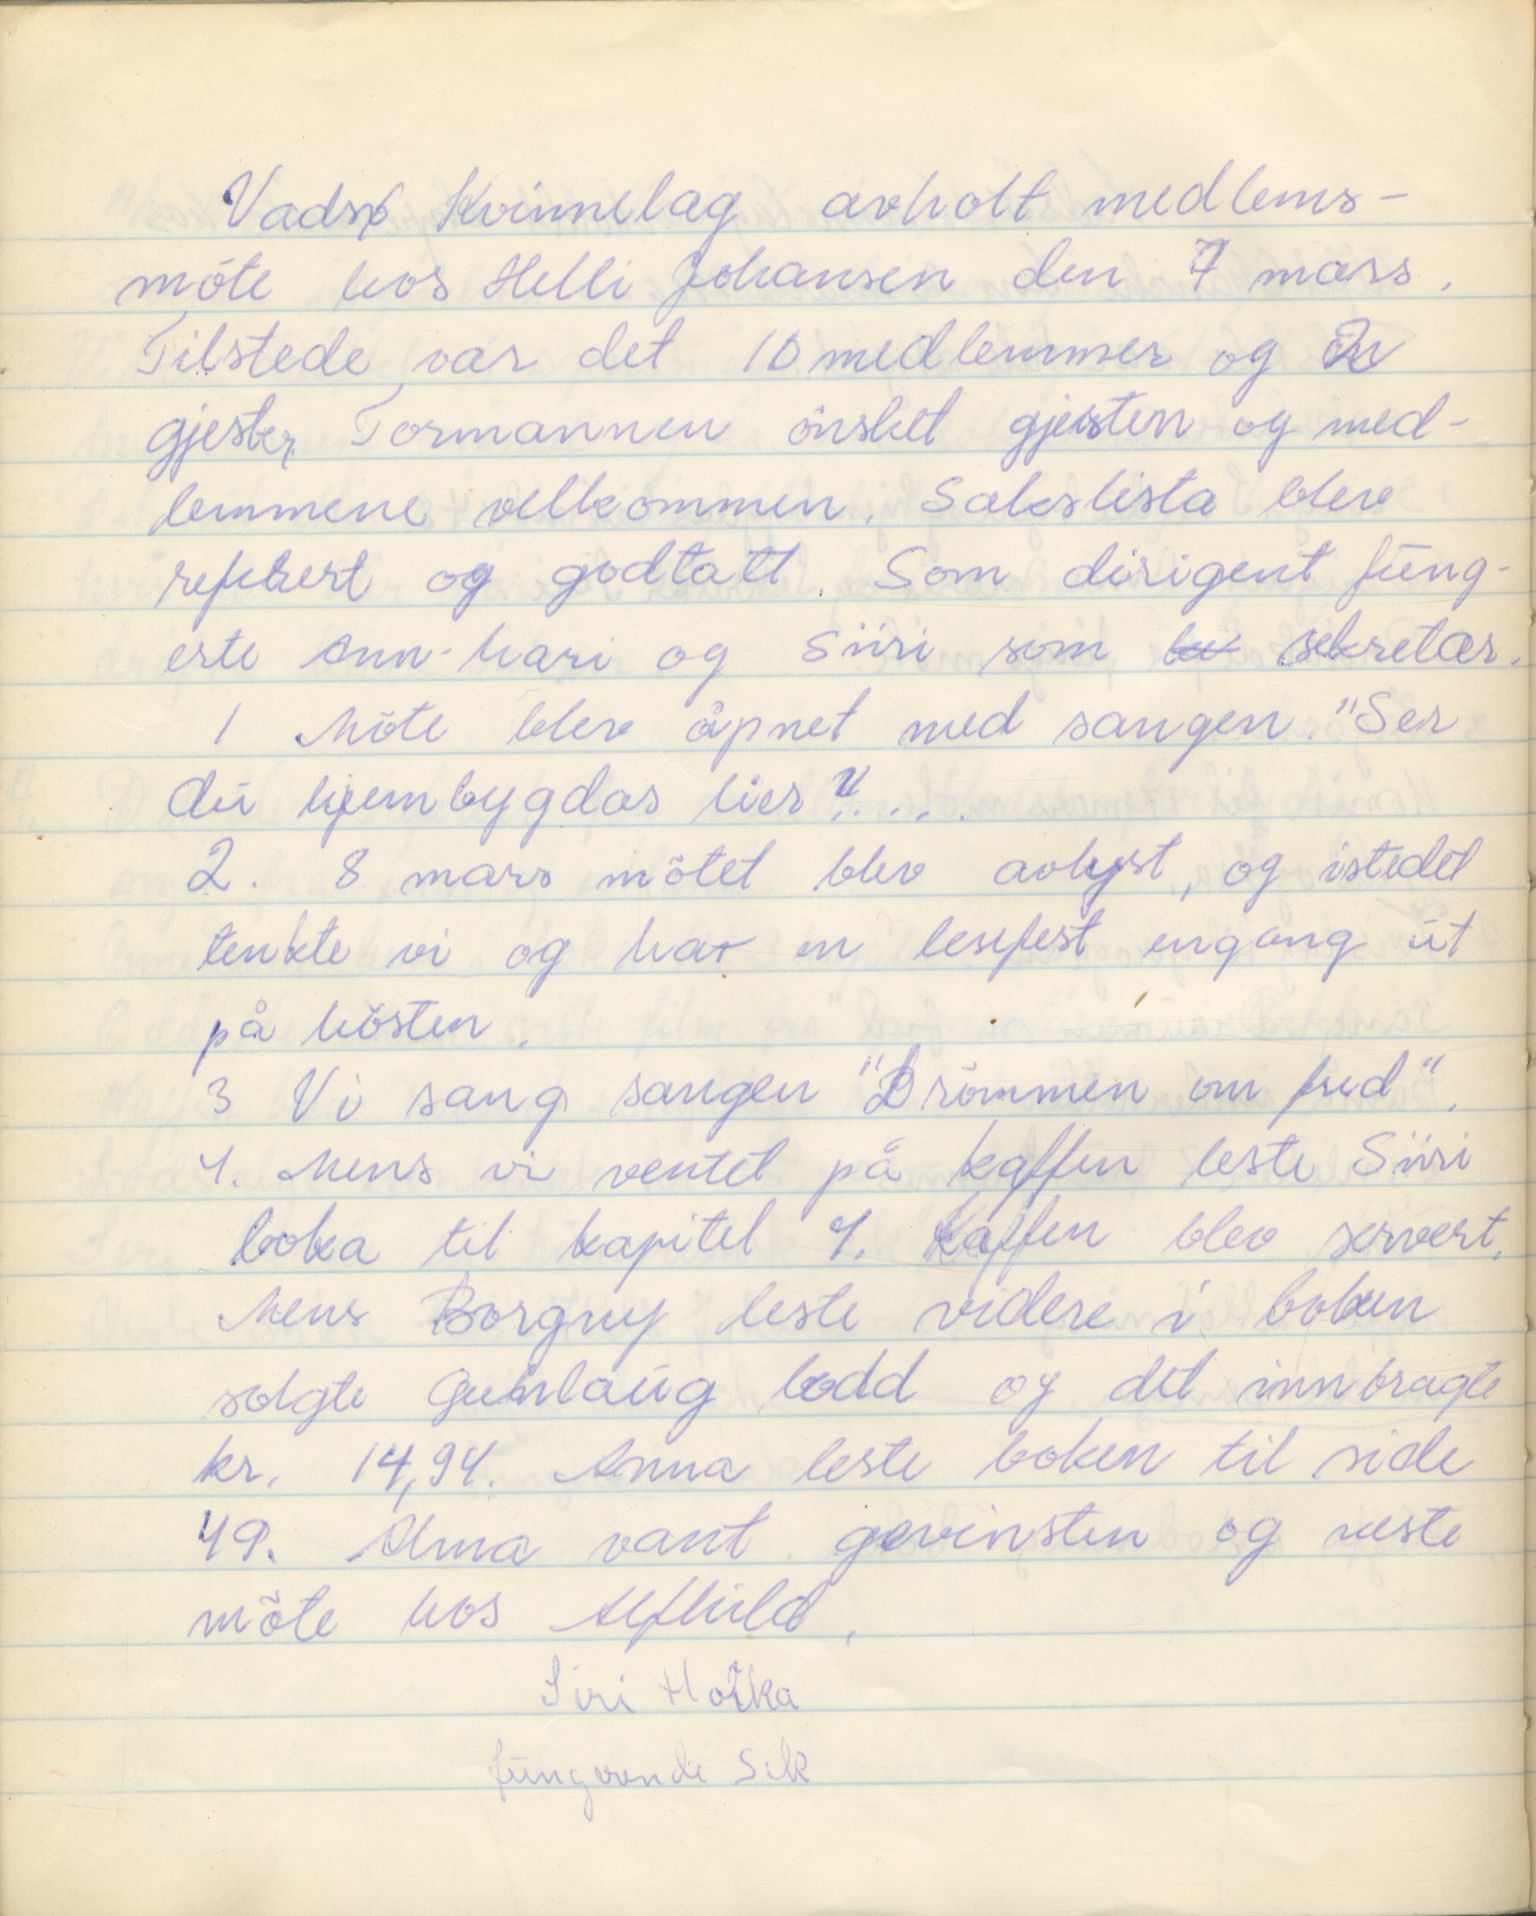 Vadsø Kvinnelag avholt medlems-
möte hos Helli Johansen den 7 mars.
Tilstede var det 10 medlemmer og 2
gjester. Formannen önsket gjesten og med-
lemmene velkommen. Sakslista blev
referert og godtatt. Som dirigent fung-
erte Ann-Mari og Siiri som sekretær.
1 Möte blev åpnet med sangen. "Ser
du hjembygdas lier"....
2. 8 mars mötet blev avlyst, og istedet
tenkte vi og har en lesefest engang ut
på hösten.
3 Vi sang sangen "Drömmen om fred".
4. Mens vi ventet på kaffen leste Siiri
boka til kapitel 4. Kaffen blev servert.
Mens Borgny leste videre i boken
solgte Gunlaug lodd og det innbragte
kr. 14,94. Anna leste boken til side
49. Alma vant gevinsten og neste
möte hos Alfhild.
Siri Hoikka
fungerende Sek